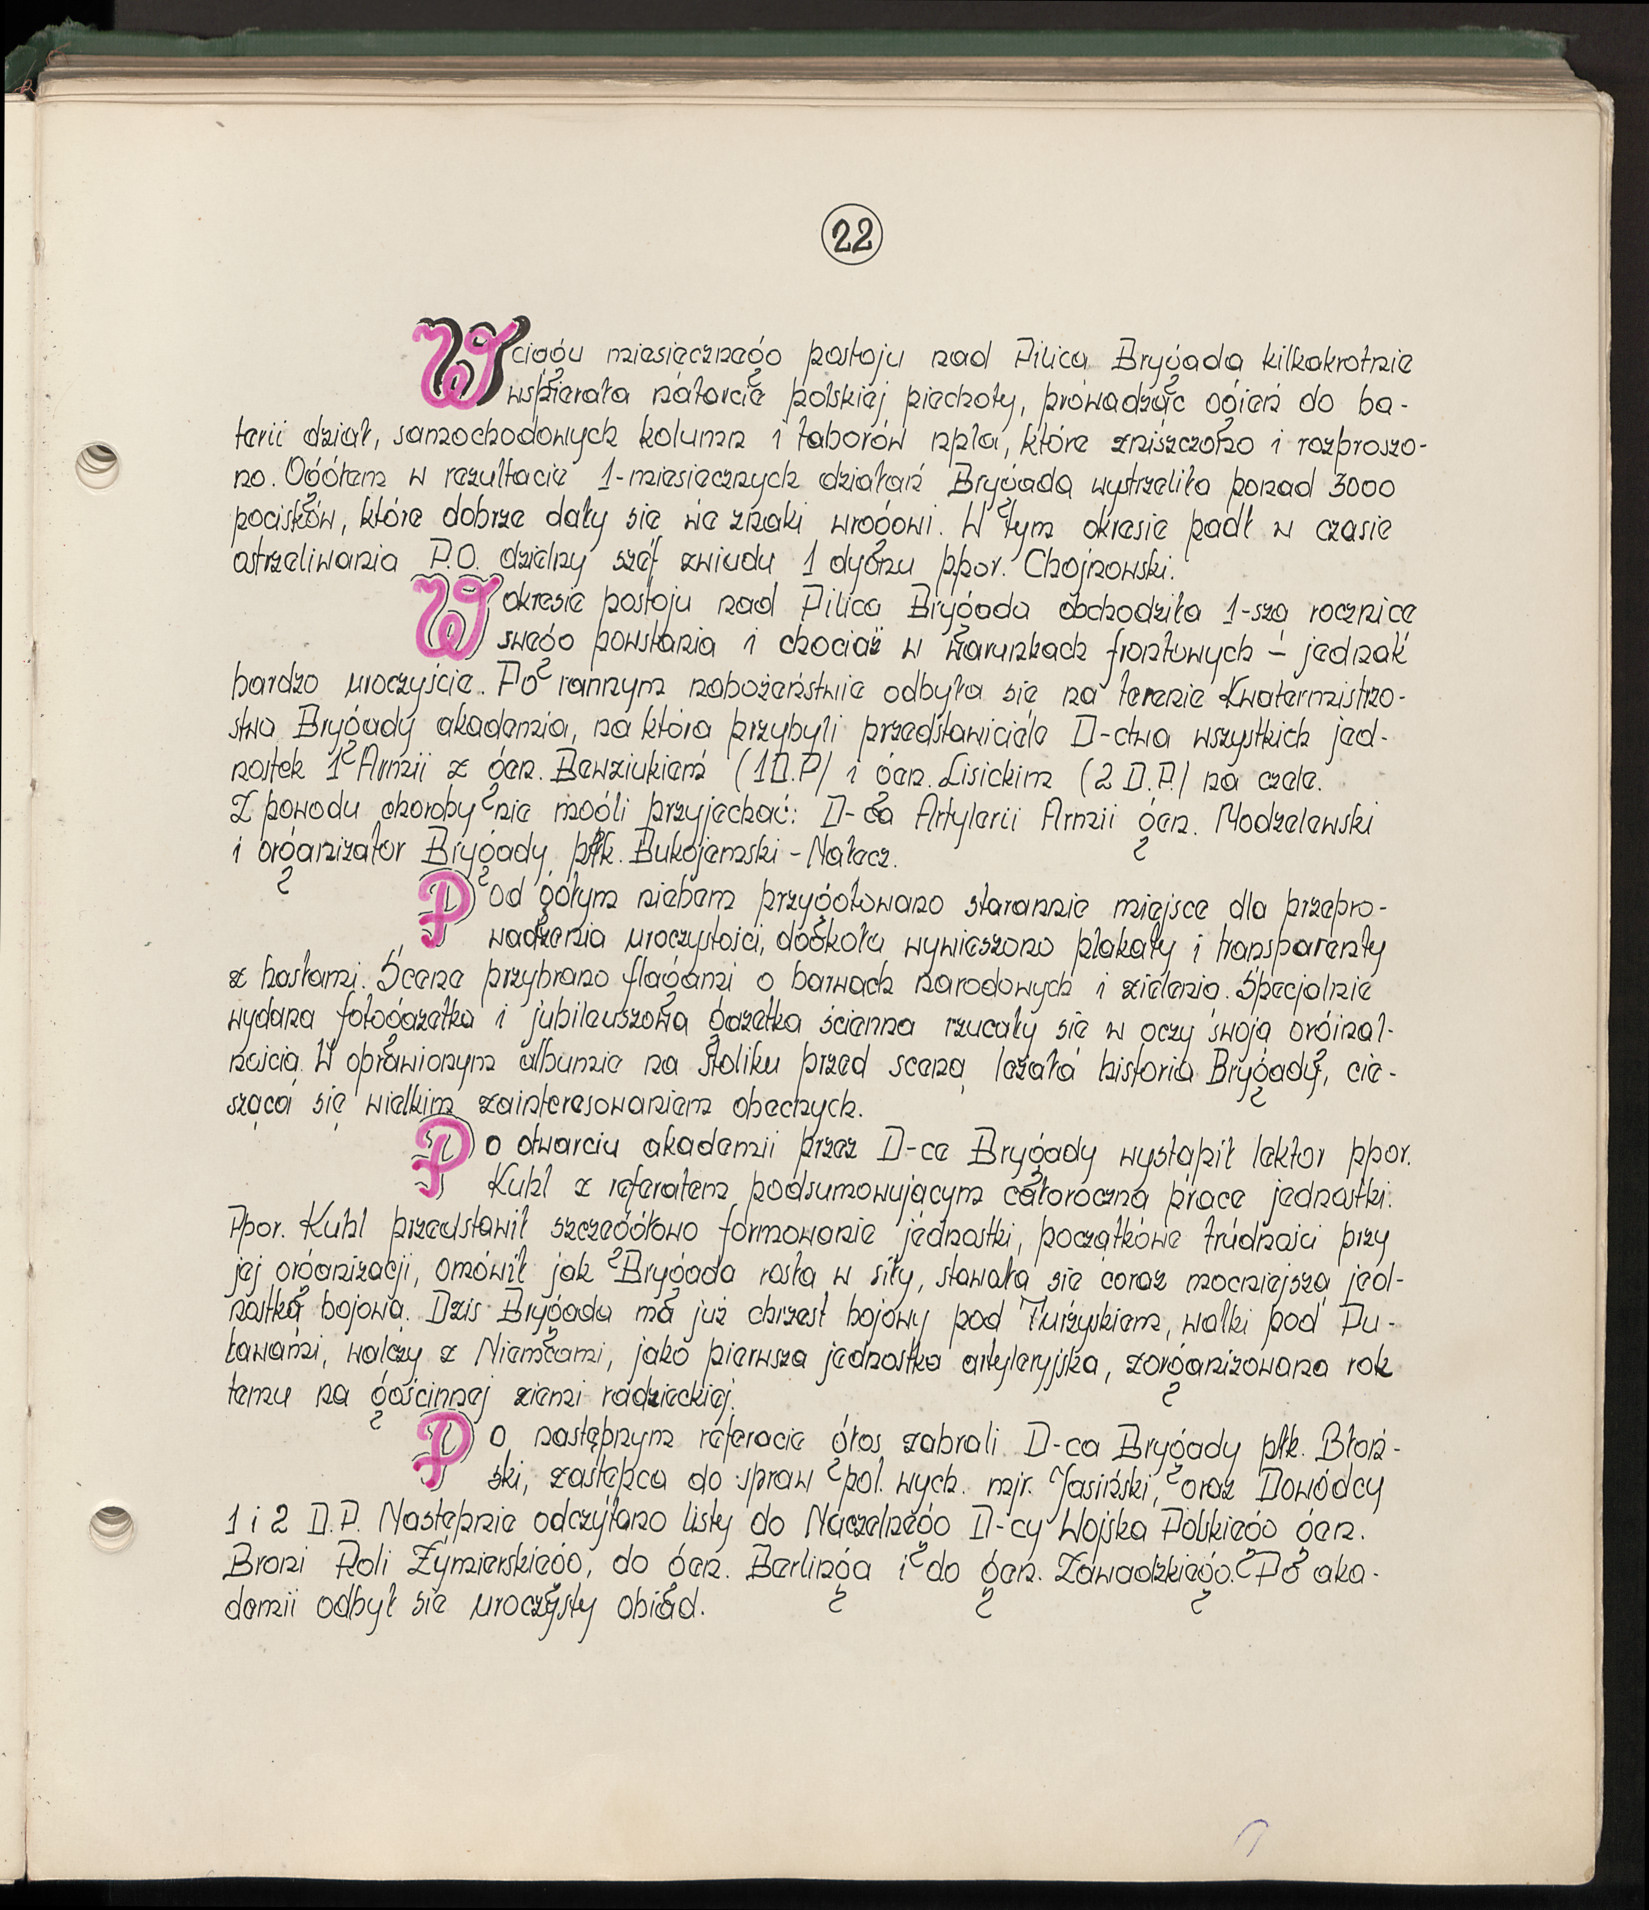 22
W ciągu miesięcznego postoju nad Pilicą Brygada kilkakrotnie
wspierała natarcie polskiej piechoty, prowadząc ogień do ba-
terii dział, samochodowych kolumn i taborów npla, które zniszczono i rozproszo-
no. Ogółem w rezultacie 1-miesięcznych działań Brygada wystrzeliła ponad 3000
pocisków, które dobrze dały się we znaki wrogowi. W tym okresie padł w czasie
ostrzeliwania P.O. dzielny szef zwiadu 1 dyonu ppor. Chojnowski.
W okresie postoju nad Pilicą Brygada obchodziła 1-szą rocznicę
swego powstania i chociaż w warunkach frontowych – jednak
bardzo uroczyście. Po rannym nabożeństwie odbyła się na terenie Kwatermistrzo-
stwa Brygady akademia, na którą przybyli przedstawiciele D-ctwa wszystkich jed-
nostek 1 Armii z gen. Bewziukiem (1 D.P) i gen. Lisickim (2 D.P.) na czele.
Z powodu choroby nie mogli przyjechać: D-ca Artylerii Armii gen. Modzelewski
i organizator Brygady płk. Bukojemski - Nałęcz.
Pod gołym niebem przygotowano starannie miejsce dla przepro-
wadzenia uroczystości, dookoła wywieszono plakaty i transparenty
z hasłami. Scenę przybrano flagami o barwach narodowych i zielenią. Specjalnie
wydana fotogazetka i jubileuszowa gazetka ścienna rzucały się w oczy swoją orginal-
nością. W oprawionym albumie na stoliku przed sceną leżała historia Brygady, cie-
sząca się wielkim zainteresowaniem obecnych.
Po otwarciu akademii przez D-cę Brygady wystąpił lektor ppor.
Kuhl z referatem podsumowującym całoroczną pracę jednostki.
Ppor. Kuhl przedstawił szczegółowo formowanie jednostki, początkowe trudności przy
jej organizacji, omówił jak Brygada rosła w siły, stawała się coraz mocniejszą jed-
nostką bojową. Dziś Brygada ma już chrzest bojowy pod Turzyskiem, walki pod Pu-
ławami, walczy z Niemcami, jako pierwsza jednostka artyleryjska, zorganizowana rok
temu na gościnnej ziemi radzieckiej.
Po następnym referacie głos zabrali D-ca Brygady płk. Błoń-
ski, zastępca do spraw pol. wych. mjr. Jasiński, oraz Dowódcy
1 i 2 D.P. Następnie odczytano listy do Naczelnego D-cy Wojska Polskiego gen.
Broni Roli Żymierskiego, do gen. Berlinga i do gen. Zawadzkiego. Po aka-
demii odbył się uroczysty obiad.